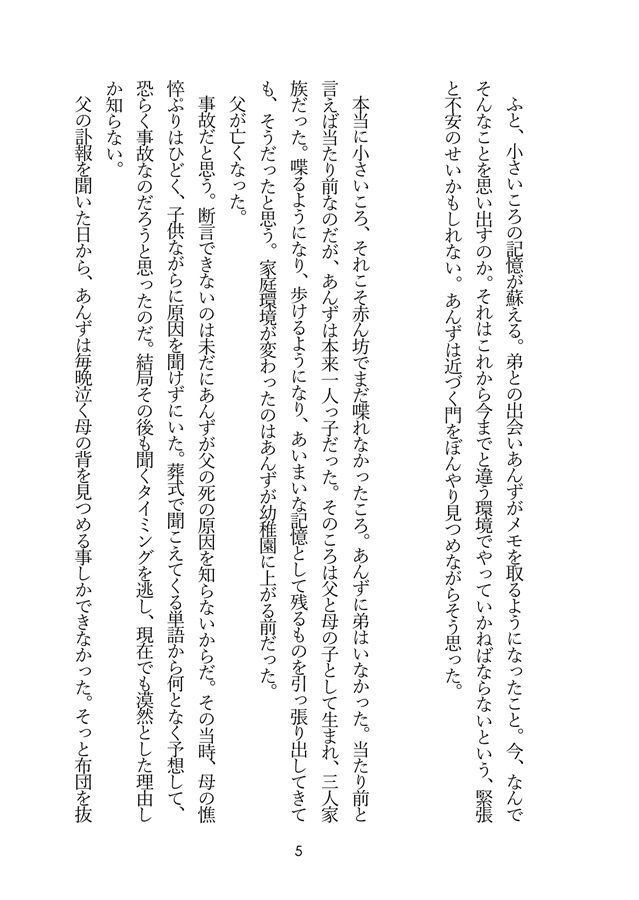 ふと、小さいころの記憶が蘇る。弟との出会いあんずがメモを取るようになったこと。今、なんで
そんなことを思い出すのか。それはこれから今までと違う環境でやっていかねばならないという、緊張
と不安のせいかもしれない。あんずは近づく門をぼんやり見つめながらそう思った。
本当に小さいころ、それこそ赤ん坊でまだ喋れなかったころ。あんずに弟はいなかった。当たり前と
言えば当たり前なのだが、あんずは本来一人っ子だった。そのころは父と母の子として生まれ、三人家
族だった。喋るようになり、歩けるようになり、あいまいな記憶として残るものを引っ張り出してきて
も、そうだったと思う。家庭環境が変わったのはあんずが幼稚園に上がる前だった。
父が亡くなった。
事故だと思う。断言できないのは未だにあんずが父の死の原因を知らないからだ。その当時、母の憔
悴ぶりはひどく、子供ながらに原因を聞けずにいた。葬式で聞こえてくる単語から何となく予想して、
恐らく事故なのだろうと思ったのだ。結局その後も聞くタイミングを逃し、現在でも漠然とした理由し
か知らない。
父の訃報を聞いた日から、あんずは毎晩泣く母の背を見つめる事しかできなかった。そっと布団を抜
5